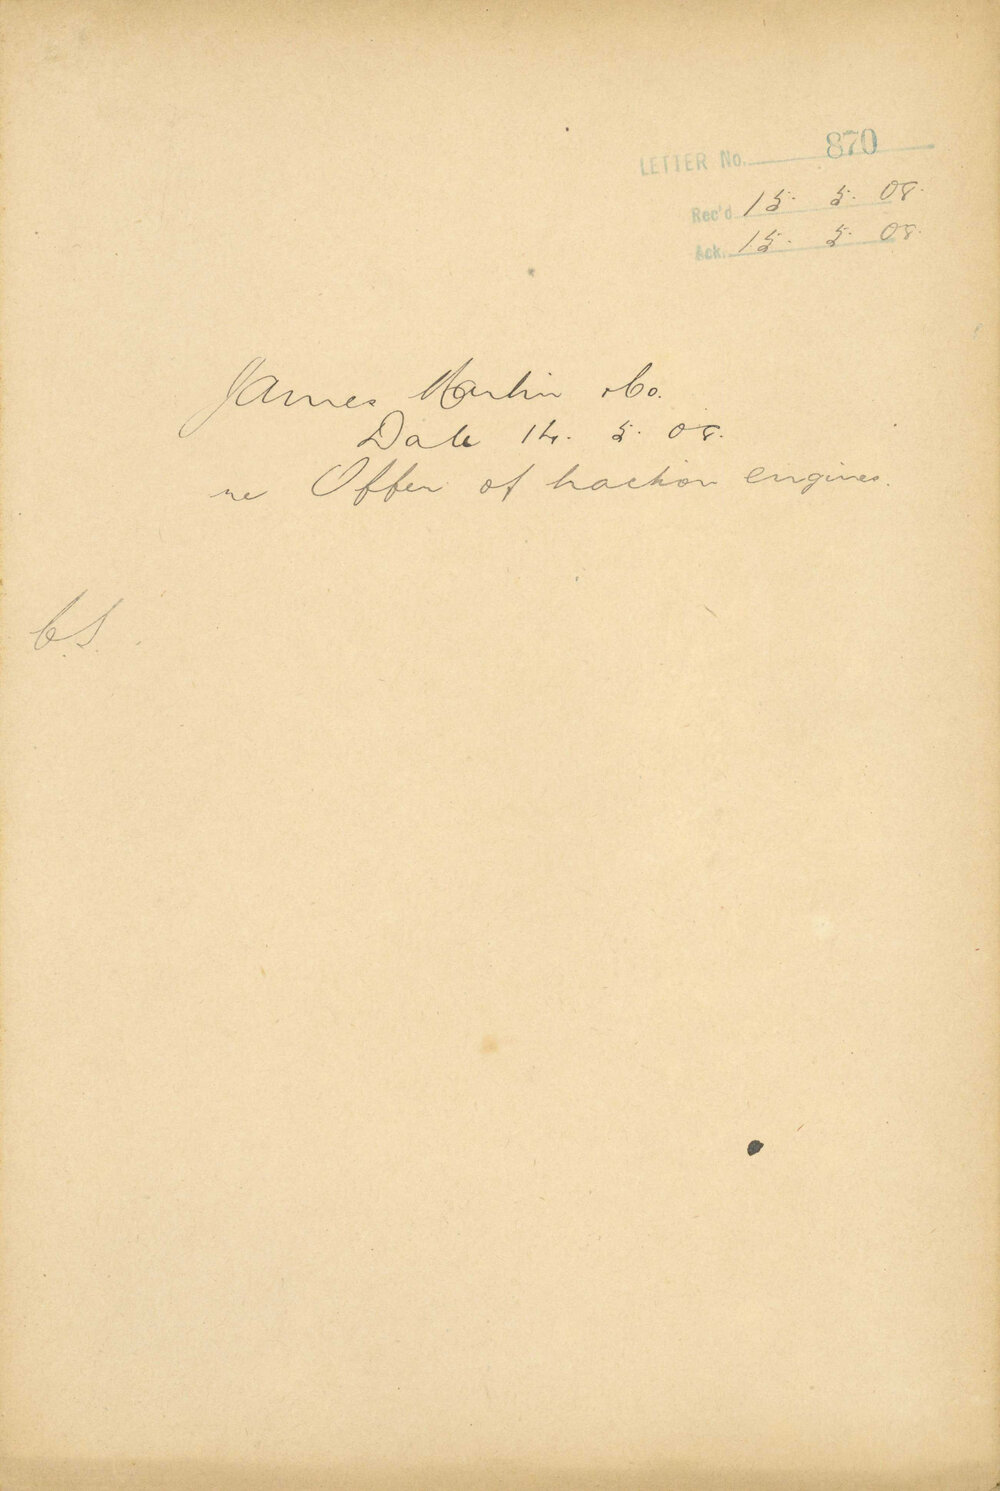 LETTER No. 870
Rec'd 15. 5. 08.
Ack. 15. 5. 08.
James Martin & Co.
Date 14. 5. 08.
re Offer of traction engines.
C.S.